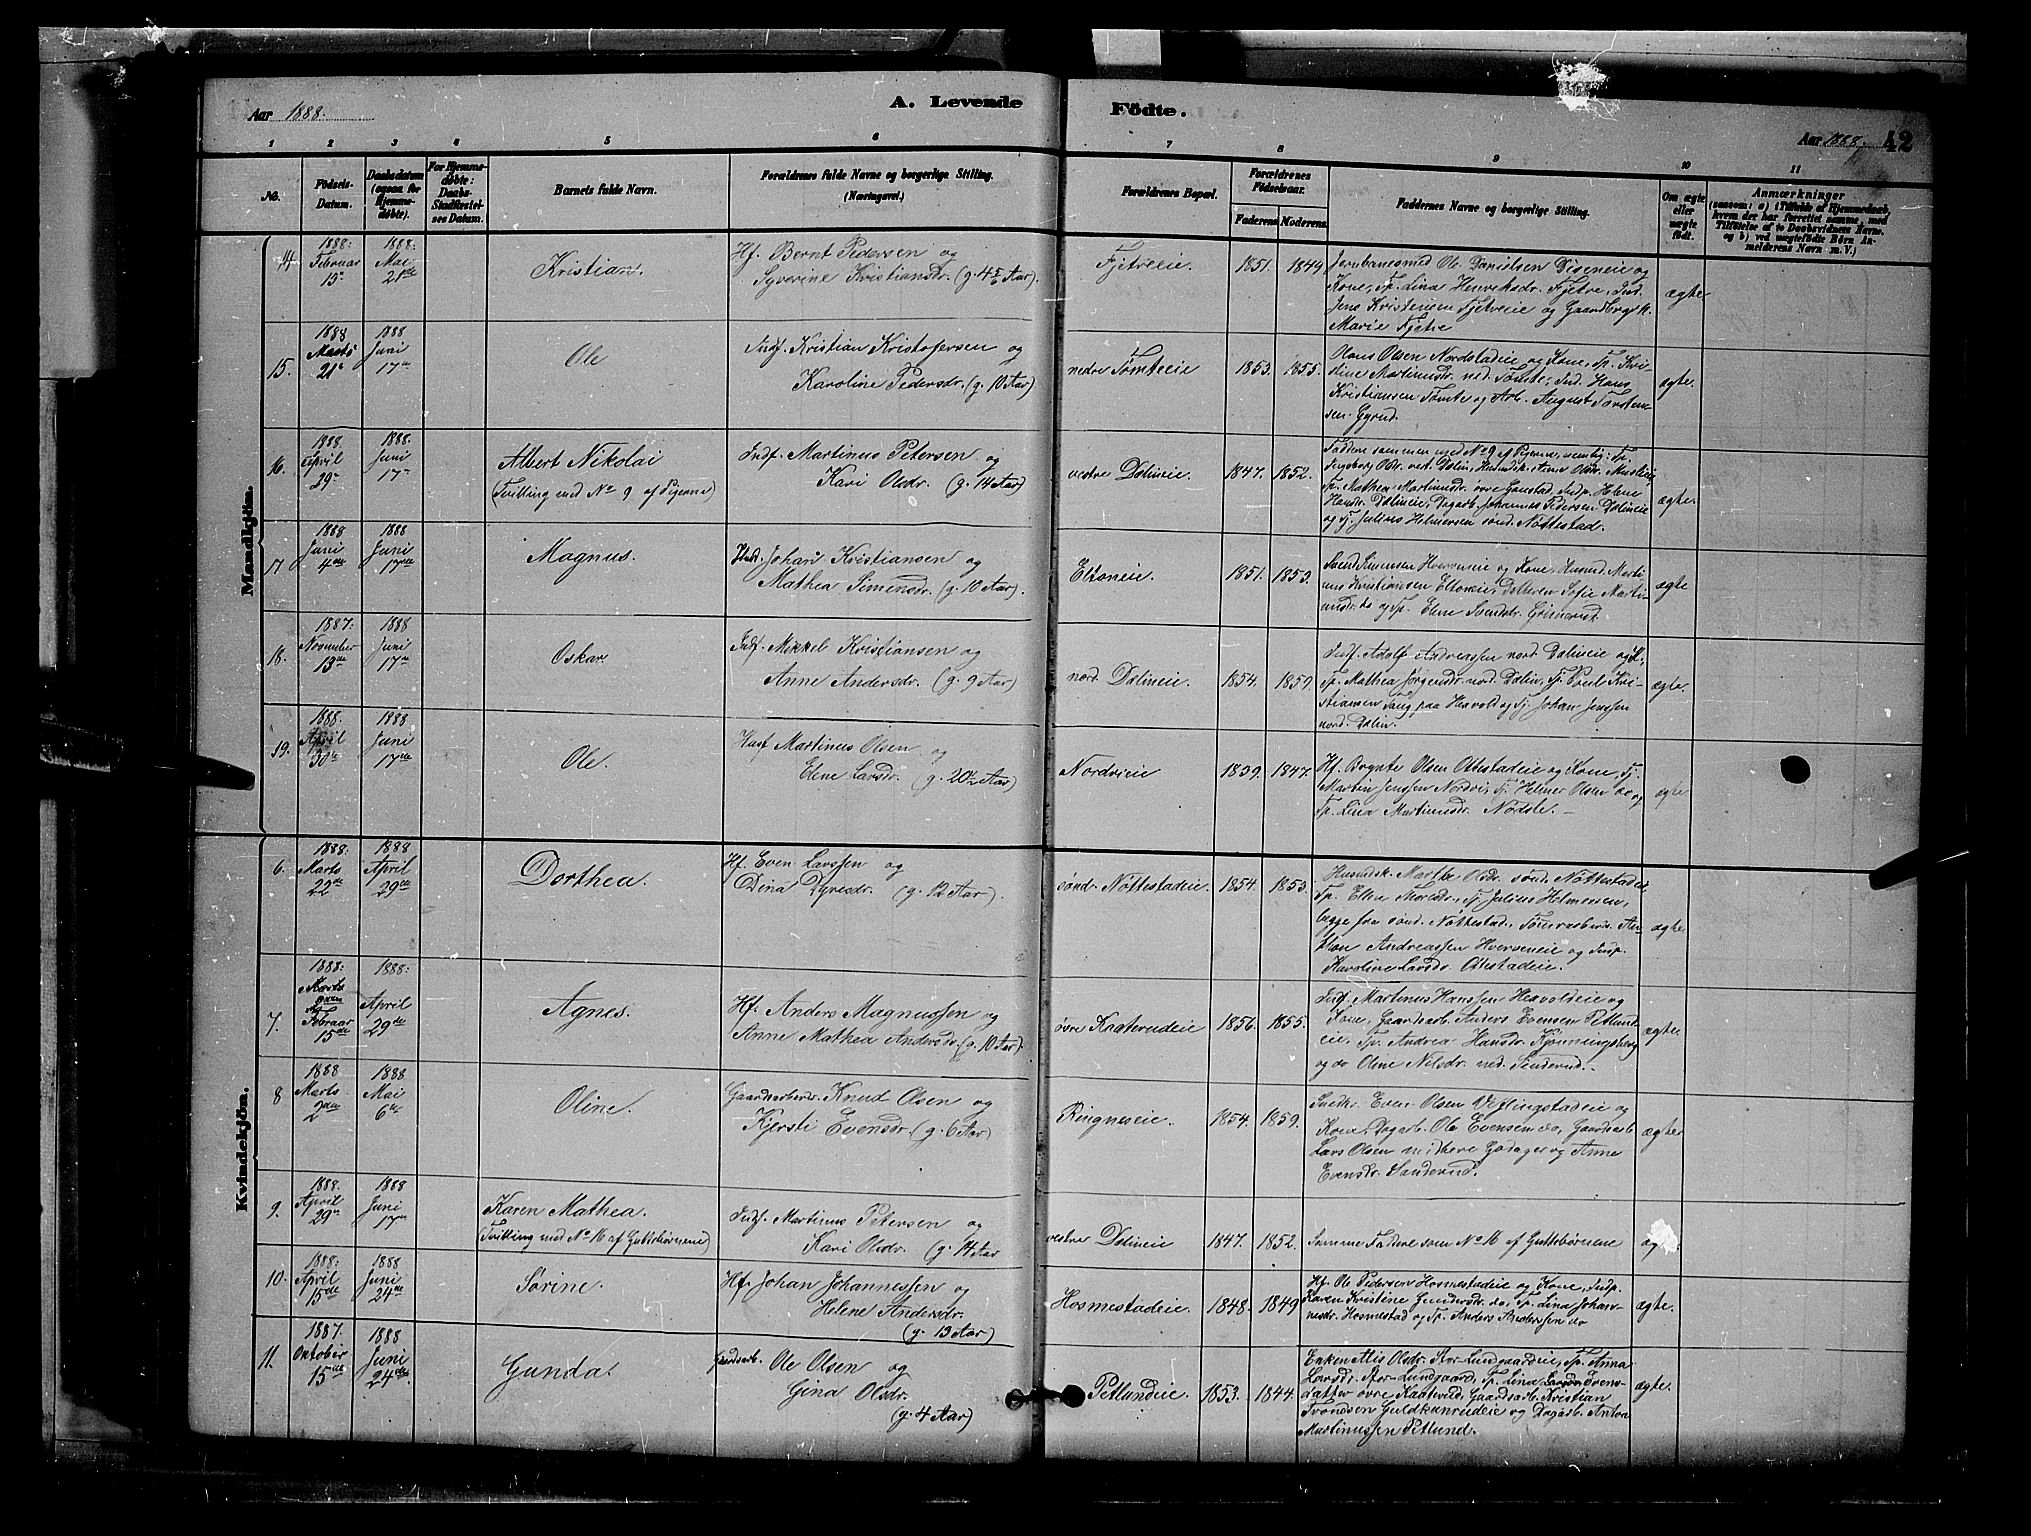 Aar 1888.
A. Levende
Födte.
Aar 1888.
42
1 2 3 4 5 6 7 8 9 10 11
No.
Födsels-Datum.
Daabsdatum (ogsaa for Hjemmedøbte).
For Hjemmedøbte: Daabs-Stadfæstelses Datum.
Barnets fulde Navn.
Forældrenes fulde Navne og borgerlige Stilling.
(Næringsvei.)
Forældrenes Bopæl.
Forældrenes Fødselsaar.
Faderens Moderens
Faddernes Navne og borgerlige Stilling.
Om ægte eller uægte født.
Anmærkninger
(saasom: a) i Tilfælde af Hjemmedaab, hvem der har forrettet samme, med Tilføielse af to Daabsvidners Navne, og b) ved uægtefødte Børn Anmelderens Navn m. V.)
Mandkjön.
14 1888 Februar 15de 1888 Mai 21de Kristian. Hf. Bernt Pedersen og
Syverine Kristiansdr. (g. 4 Aar). Fjetreeie. 1851. 1844
Jernbanesmed Ole Danielsen Diseneie og
Kone, Tp. Lina Henriksdr. Fjetre, Ind.
Jens Kristensen Fjetreeie og Gaardbrgsk.
Marie Fjetre ægte
15. 1888 Marts 21de 1888 Juni 17de Ole Indf. Kristian Kristofersen og
Karoline Pedersdr. (g. 10 Aar) nedre Tomteeie 1853. 1855.
Hans Olsen Nordstadeie og Kone, Tp. Kristine Martinusdr. ned. Tomte, Ind. Hans
Kristiansen Tomte og Arb. August Torstensen Gyrud. ægte.
16. 1888 April 29de 1888. Juni 17de Albert Nikolai
(Tvilling med No 9 af Pigerne) Indf. Martinus Petersen og
Kari Olsdr. (g. 14 Aar) vestre Dælineie 1847. 1852.
Faddere sammen med No 9 af Pigerne, nemlig: Tp.
Ingeborg Olsdr. vest. Dælin, Husmdsk. Anne Olsdr.
Tp. Mathea Martinusdr. övre Gaustad, Indp. Helene
Hansdr. Dælineie, Dagarb. Johannes Pedersen Dælineie
og Tj. Julius Helmersen sönd. Nöttestad. ægte.
17 1888 Juni 4de 1888 Juni 17de Magnus. Husm. Johan Kristiansen og
Mathea Simensdr. (g. 10 Aar). Eltoneie. 1851. 1853.
Svend Simensen Hverveneie og Kone, Husmd. Martinus Kristiansen Eltoneie, Datteren Sofie Martinusdr. do og Tp. Elene Svendsdr. ægte
18. 1887: November 13de 1888 Juni 17de Oskar Indf. Mikkel Kristiansen og
Anne Andersdr. (g. 9 Aar) nord. Dælineie. 1854. 1859.
Indf. Adolf Andreassen nord. Dælineie og K.
Tp. Mathea Jörgensdr. nord. Dælin, Tj. Paul Kristiansen Saug paa Hexvold og Tj. Johan Jenssen
nord. Dælin. ægte.
19. 1888. April 30te 1888 Juni 17de Ole. Husf Martinus Olsen og
Elene Larsdr. (g. 20½ Aar) Nordvieie 1839. 1847.
Hf. Brynte Olsen Ottestadeie og Kone, Tj.
Martin Jenssen Nordvi, Tj. Helmer Olsen do og
Tp. Lina Martinusdr. Nodsle. ægte
Kvindekjön.
6. 1888. Marts 22de 1888 April 29de Dorthea. Hf. Even Larssen og
Dina Dyresdr. (g. 12 Aar). sönd. Nöttestadeie. 1854. 1853.
Husmdsk. Marthe Olsdr. sönd. Nöttestadeie,
Tp. Ellen Thoresdr., Tj. Julius Helmersen,
begge fra sönd. Nöttestad, Tömresberdr. Anthon Andreassen Hverveneie og Indp.
Karoline Larsdr. Ottestadeie. ægte
7. 1888: Marts Februar 15de 1888: April 29de Agnes. Hf. Anders Magnussen og
Anne Mathea Andersdr. (g. 10 Aar). övre Knaterudeie 1856. 1855.
Indf. Martinus Hanssen Hexvoldeie og
Kone, Gaardsarb. Anders Evensen Petlundeie, Tp. Andrea Hansdr. Kjönningsberg
og do Oline Nilsdr. ned. Sinderud. ægte
8 1888 Marts 2den 1888 Mai 6te Oline. Gaardsarbeidr. Knud Olsen og
Kjersti Evensdr. (g. 6 Aar) Ringneseie. 1854. 1859.
Snedkr. Even Olsen Veflingstadeie og
Kone, Dagarb. Ole Evensen do, Gaardsarb.
Lars Olsen nedre Godager og Anne
Evensdr. Sanderud. ægte
9. 1888. April 29de 1888 Juni 17de Karen Mathea.
(Tvilling med No 16 af Guttebørnene) Indf. Martinus Petersen og
Kari Olsdr. (g. 14 Aar vestre Dælineie 1847. 1852.
Samme Faddere som No 16 af Guttebørnene
10. 1888: April 15de 1888 Juni 24de Sorine. Hf. Johan Johannessen og
Helene Andersdr.
(g. 13 Aar) Hosmestadeie 1848. 1849
Hf. Ole Pedersen Hosmestadeie og Kone, Indp.
Karen Kristine Gundersdr. do, Tp. Lina Johannesdr. Hosmestad og Tp. Anders Anderssen do ægte.
11. 1887. Oktober 15de 1888 Juni 24de Gunda. Gaardsarb. Ole Olsen og
Gina Olsdr.
(g. 4 Aar) Petlundeie. 1853. 1844.
Enken Alis Olsdr. Stor-Lundgaardeie, Tp. Anna
Larsdr. Stor-Lundgaard, Tp. Lina Evensdatter övre Kaaterud, Gaardsarb. Kristian
Trondsen Guldkanrudeie og Dagarb. Anton
Martinussen Petlund. ægte.